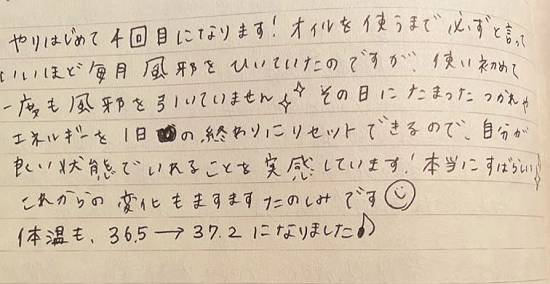 やりはじめて4回目になります!オイルを使うまで必ずと言って
いいほど毎月風邪をひいていたのですが、使い初めて
一度も風邪を引いていません✨その日にたまったつかれや
エネルギーを1日の終わりにリセットできるので、自分が
良い状態でいれることを実感しています!本当にすばらしい✨
これからの変化もますますたのしみです☺
体温も、36.5→37.2になりました♪